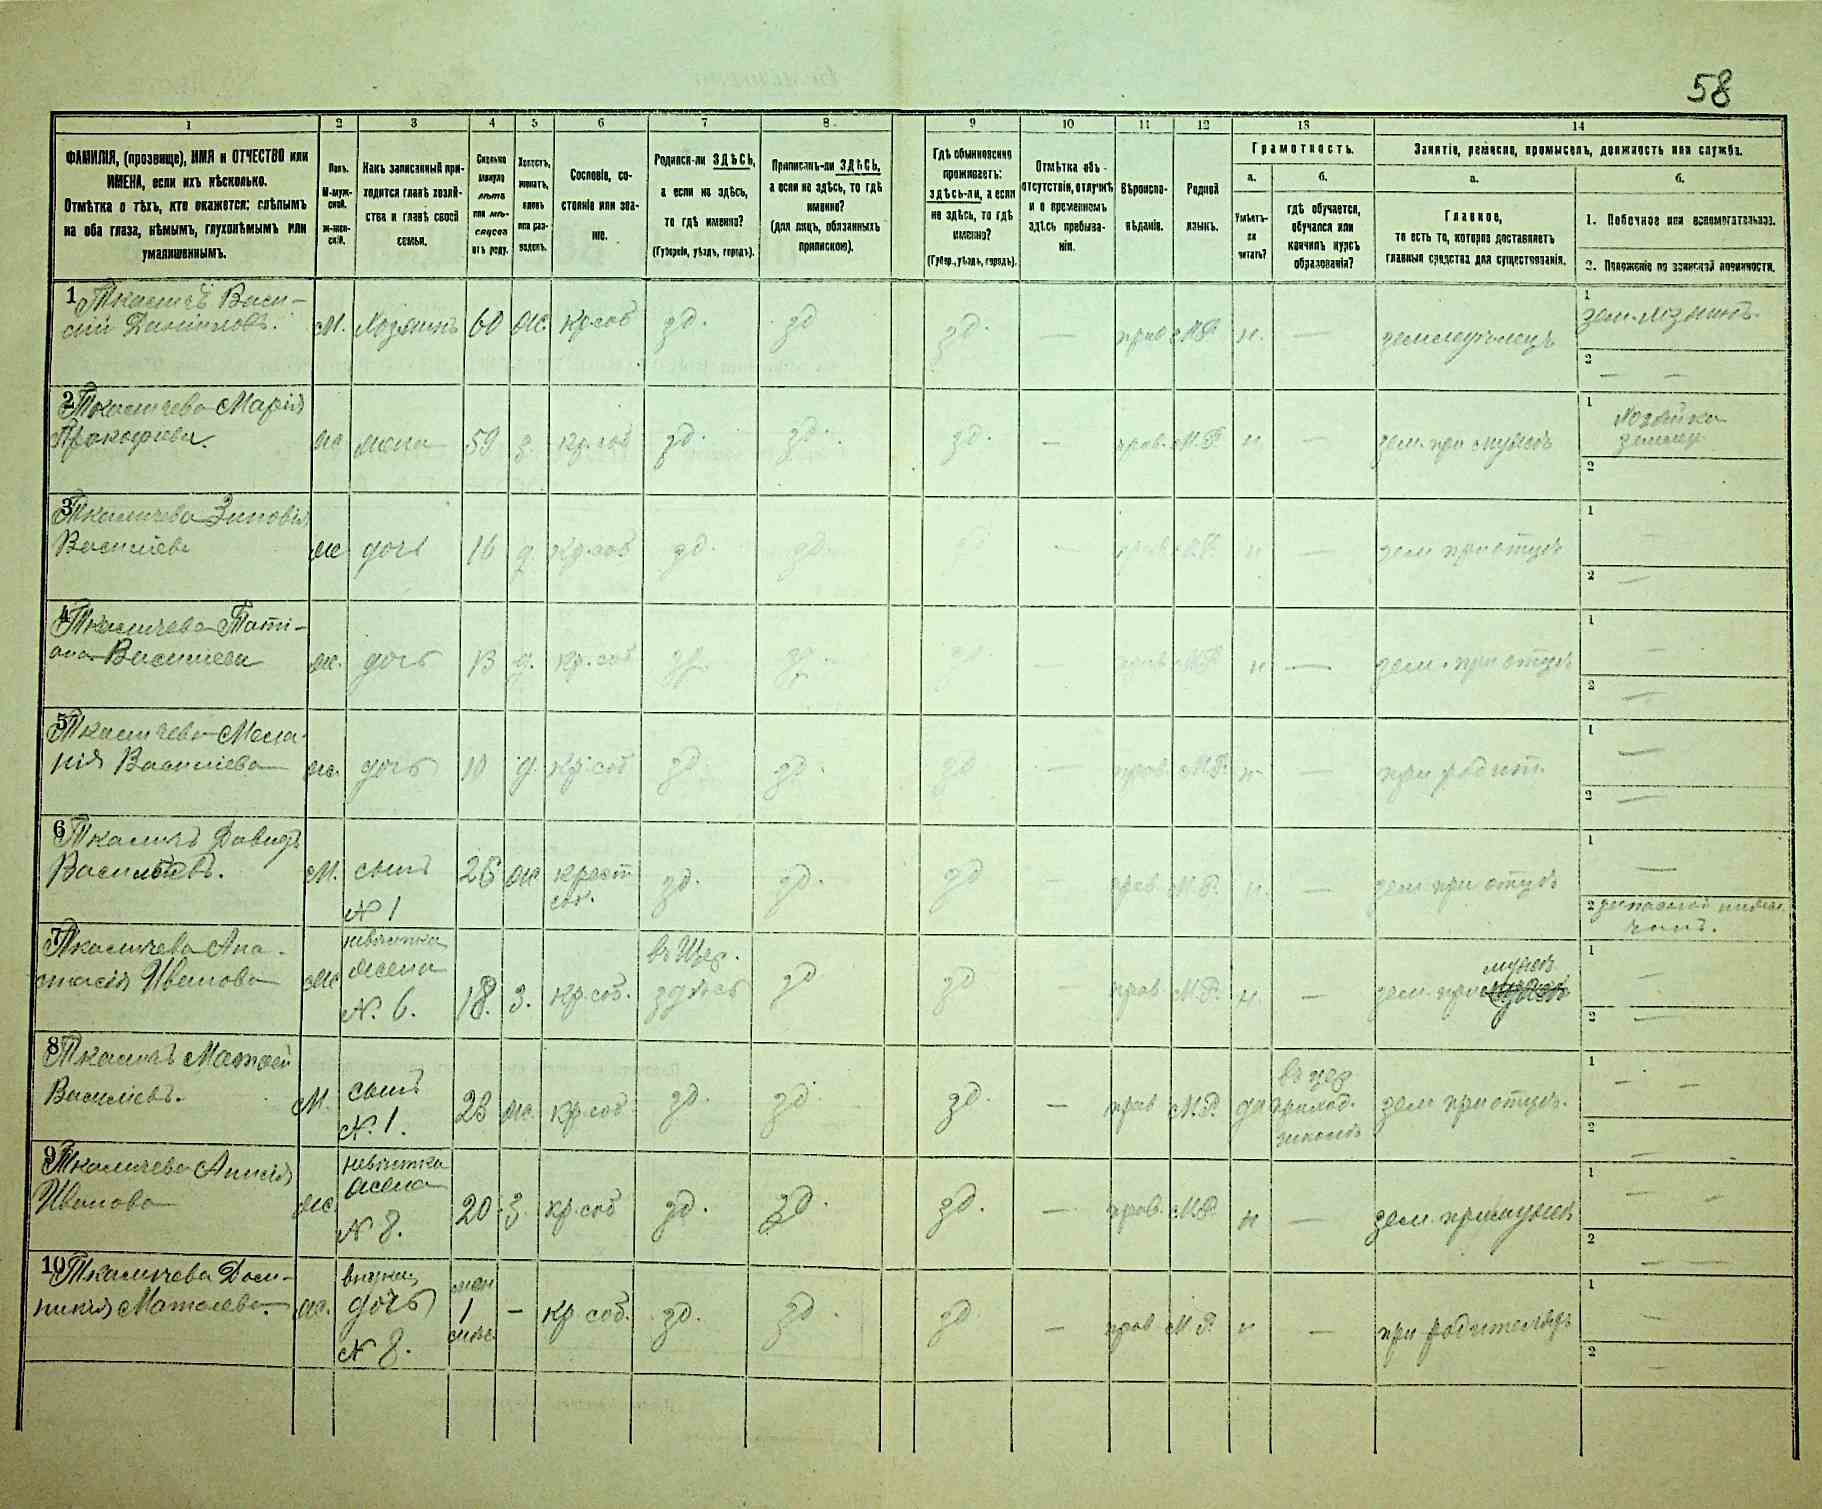 58
1 2 3 4 5 6 7 8. 9 10 11 12 13 14
ФАМИЛІЯ, (прозвище), ИМЯ и ОТЧЕСТВО или
ИМЕНА, если ихъ нѣсколько.
Отмѣтка о тѣхъ, кто окажется: слѣпымъ
на оба глаза, нѣмымъ, глухонѣмымъ или
умалишеннымъ.
Полъ.
М-муж-
ской.
ж-жен-
скій.
Какъ записанный при-
ходится главѣ хозяй-
ства и главѣ своей
семьи.
Сколько
минуло
лѣтъ
или мѣ-
сяцевъ
отъ роду.
Холостъ,
женатъ,
вдовъ
или раз-
веденъ.
Сословіе, со-
стояніе или зва-
ніе.
Родился-ли ЗДѢСЬ,
а если не здѣсь,
то гдѣ именно?
(Губернія, уѣздъ, городъ).
Приписанъ-ли ЗДѢСЬ,
а если не здѣсь, то гдѣ
именно?
(для лицъ, обязанныхъ
припискою).
Гдѣ обыкновенно
проживаетъ:
здѣсь-ли, а если
не здѣсь, то гдѣ
именно?
(Губер., уѣздъ, городъ).
Отмѣтка объ
отсутствіи, отлучкѣ
и о временномъ
здѣсь пребыва-
ніи.
Вѣроиспо-
вѣданіе.
Родной
языкъ.
Грамотность.
а.
Умѣетъ-
ли
читать?
б.
гдѣ обучается,
обучался или
кончилъ курсъ
образованія?
Занятіе, ремесло, промыселъ, должность или служба.
а.
Главное,
то есть то, которое доставляетъ
главныя средства для существованія.
б.
1. Побочное или вспомогательное.
2. Положеніе по воинской повинности.
1 Ткаличъ Васи-
лій Даниловъ. М. хозяинъ 60 ж кр. соб зд. зд зд. — прав М.Р. н. — земледѣлецъ
1
2 — —
2 Ткаличева Марія
Прокофіева. ж жена 59 з. кр. соб зд. зд. зд. — прав. М.Р. н — зем. при мужѣ
1 Хозяйка
2
3 Ткаличева Зиновія
Василіева ж дочь 16 д. кр. соб зд. зд. зд — прав М.Р. н — зем при отцѣ
1 —
2 —
4 Ткаличева Тати-
ана Василіева ж. дочь 13 д. кр. соб зд. зд. зд. — прав М.Р. н — зем. при отцѣ
1 —
2 —
5 Ткаличева Мела-
нія Василіева ж. дочь 10 д. кр. соб зд зд. зд — прав. М.Р. н — при родит.
1 —
2 —
6 Ткаличъ Давидъ
Васильевъ. М. сынъ 26 ж крест зд. зд. зд — прав. М.Р. н. — зем при отцѣ
№ 1 соб.
1 —
2
7 Ткаличева Ана-
стасія Иванова ж невѣстка
жена
№. 6. 18. з. кр. соб. зд зд — прав М.Р. н. — зем. при мужѣ
1 —
2 —
8 Ткаличъ Матвей
Василіевъ. М. сынъ
№. 1. 23 ж. кр. соб. зд. зд. зд. — прав М.Р. да въ цер
приход.
школѣ зем при отцѣ.
1 — —
2 —
9 Ткаличева Анисія
Иванова ж. невѣстка
жена
№ 8. 20. з. кр. соб зд. зд. зд. — прав. М.Р. н — зем. при мужѣ
1 — -
2 — —
10 Ткаличева Доми-
никія Матвеева. ж. внучка,
дочь
№ 8. 1 — кр соб. зд. зд. зд — прав М.Р. н — при родителяхъ
1 —
2 —